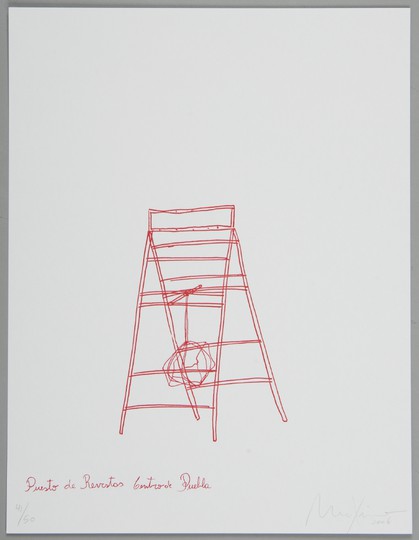 Puesto de Revistas Centro de Puebla
/50